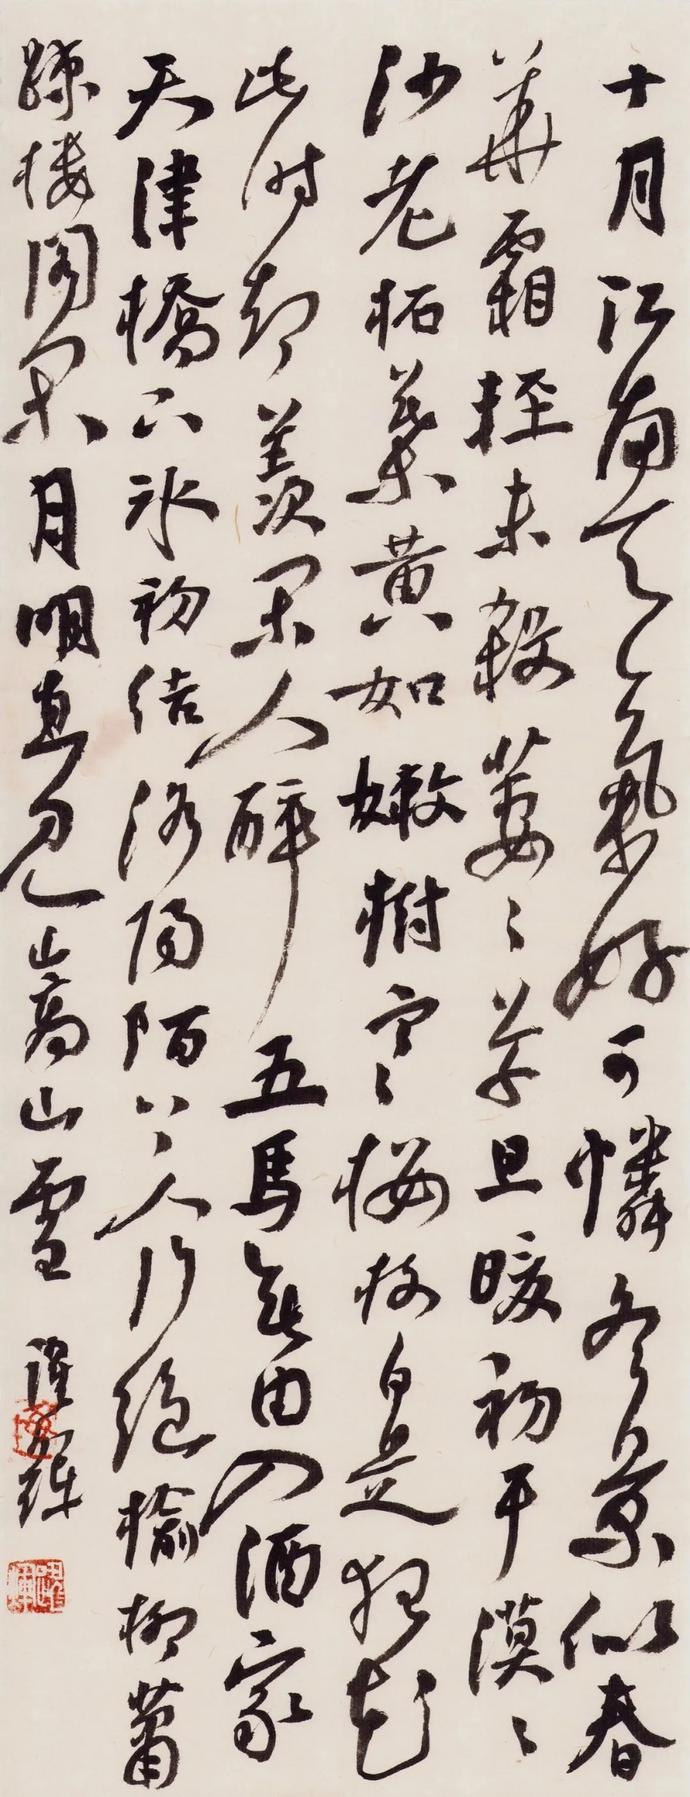 十月江南天氣好可憐冬景似春
華霜輕未殺萋〻草日暖初干漠〻
沙老柘葉黃如嫩樹寒〻櫻枝白是狂花
此時却羨閑人醉五馬無由入酒家
天津橋下冰初結洛陽陌上人行絕榆柳蕭
疎樓閣閑月明直見嵩山雪